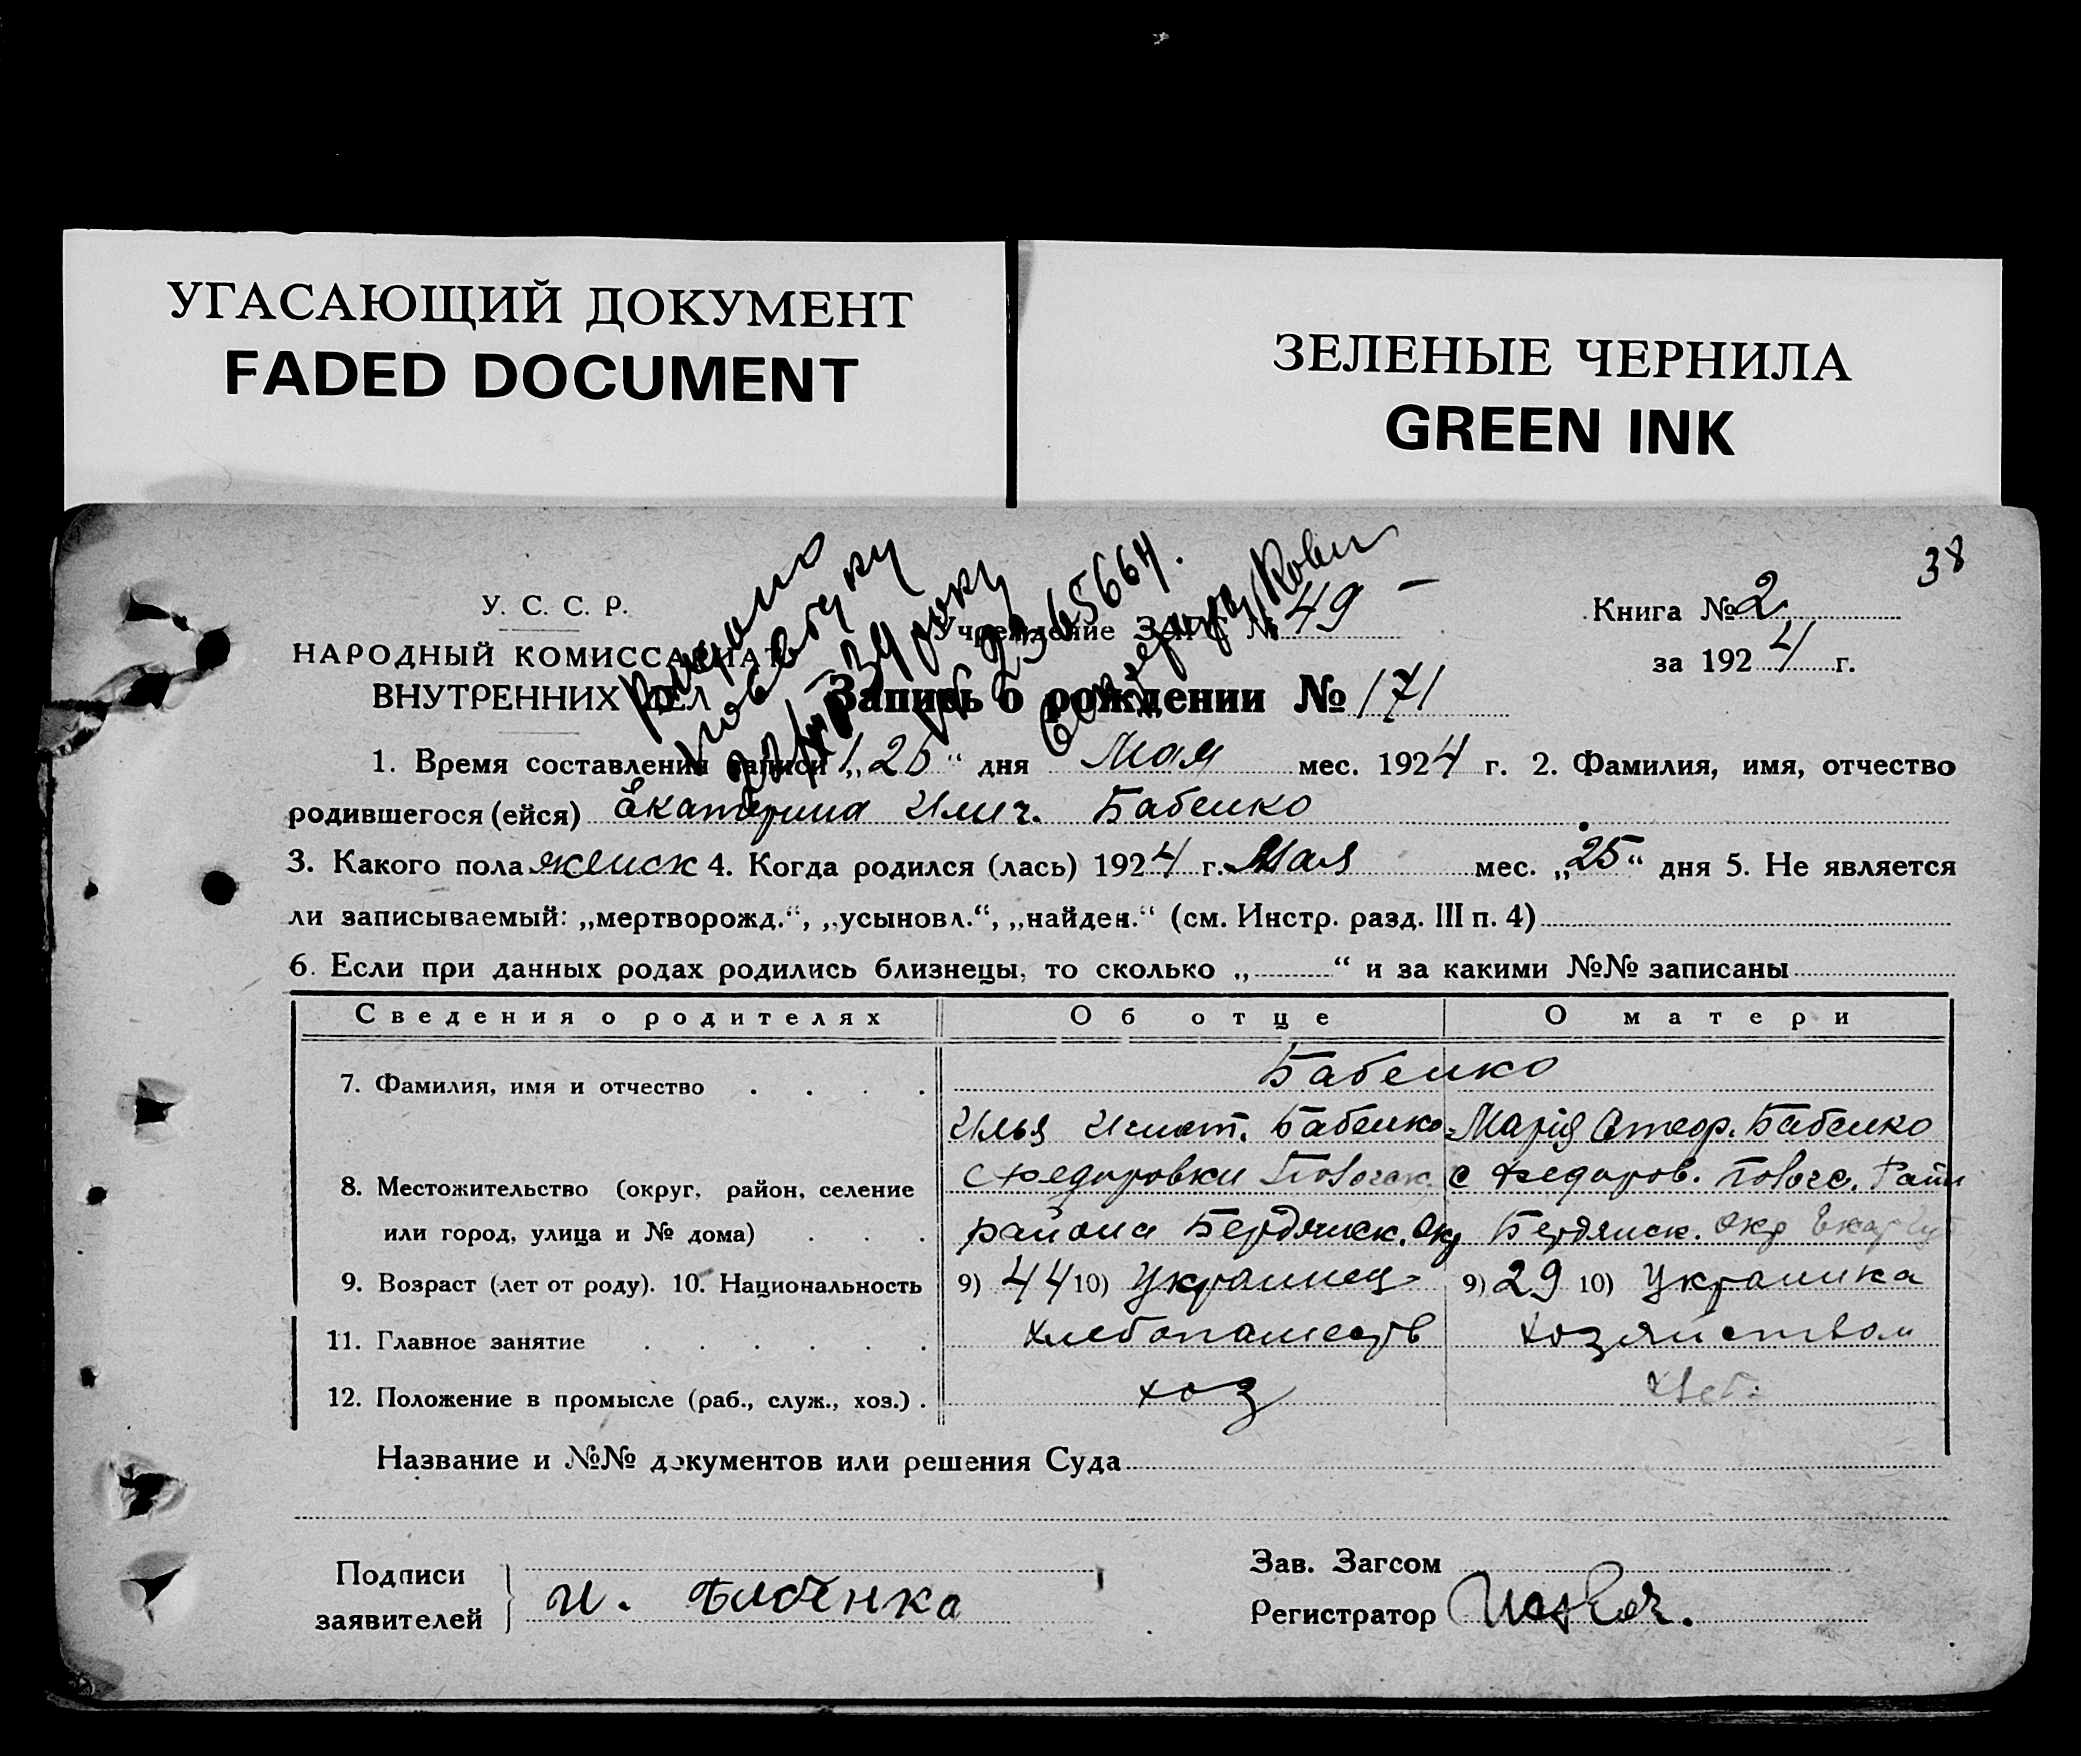 УГАСАЮЩИЙ ДОКУМЕНТ
FADED DOCUMENT
ЗЕЛЕНЫЕ ЧЕРНИЛА
GREEN INK
38
У. С. С. Р.
НАРОДНЫЙ КОМИССАРИАТ
ВНУТРЕННИХ ДЕЛ
Учреждение ЗАГС № 49
Книга № 2
за 1924 г.
Запись о рождении № 171
1. Время составления записи „25“ дня Мая мес. 1924 г. 2. Фамилия, имя, отчество
родившегося (ейся) Екатерина Илич. Бабенко
3. Какого пола женск 4. Когда родился (лась) 1924 г. Мая мес. „25“ дня 5. Не является
ли записываемый: „мертворожд.“, „усыновл.“, „найден.“ (см. Инстр. разд. III п. 4)
6. Если при данных родах родились близнецы, то сколько „ “ и за какими №№ записаны
Сведения о родителях Об отце О матери
7. Фамилия, имя и отчество . . . . Бабенко
Илья Игнат. Бабенко Марія Бабенко
8. Местожительство (округ, район, селение с Федоровки с Федоров.
или город, улица и № дома) . . . района Бердянск. Окр Бердянск. Окр
9. Возраст (лет от роду). 10. Национальность 9) 44 10) Украинец 9) 29 10) Украинка
11. Главное занятие . . . . . . Хозяйством
12. Положение в промысле (раб., служ., хоз.) . хоз
Название и №№ документов или решения Суда
Подписи
заявителей
И. Бабенка
Зав. Загсом
Регистратор